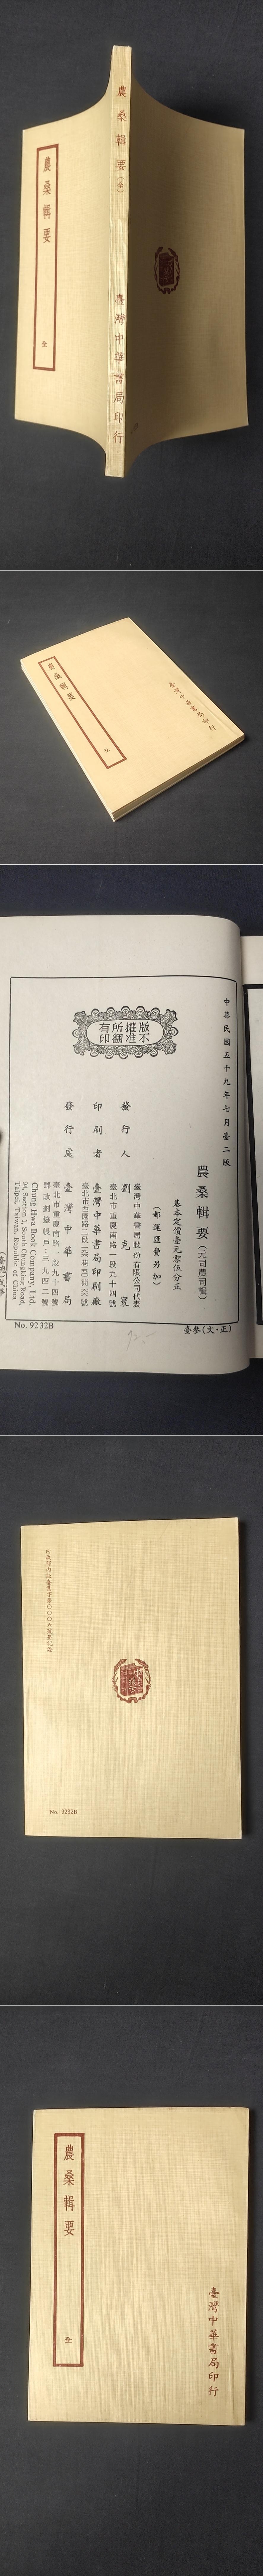 農桑輯要
全
農桑輯要(全)
臺灣中華書局印行
農桑輯要
全
臺灣中華書局印行
中華民國五十九年七月臺二版
農桑輯要(元司農司輯)
基本定價壹元零伍分正
(郵運匯費另加)
版權所有
不准翻印
發行人
臺灣中華書局股份有限公司代表
劉克寰
臺北市重慶南路一段九十四號
印刷者
臺灣中華書局印刷廠
發行處
臺灣中華書局
臺北市重慶南路一段九十四號
郵政劃撥帳戶:三九四二號
Chung Hwa Book Company, Ltd.
94, Section 1, South Chungking Road,
Taipei, Taiwan, Republic of China
No. 9232B
臺參(文·正)
內政部內版臺業字第〇〇〇六號登記證
No. 9232B
農桑輯要
全
臺灣中華書局印行